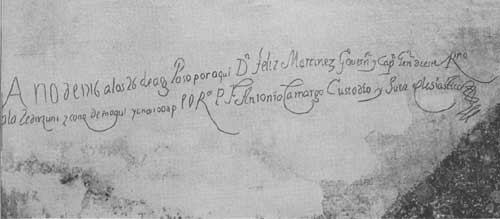 Año de 1716 a los 26 de ag Paso por aqui Dn Feliz Martinez Governr y Capn Genl de este Rno
a la reduczn y conq de moqui y en su comp el Ro P. F. Antonio Camargo Custodio y Juez eclesiastico